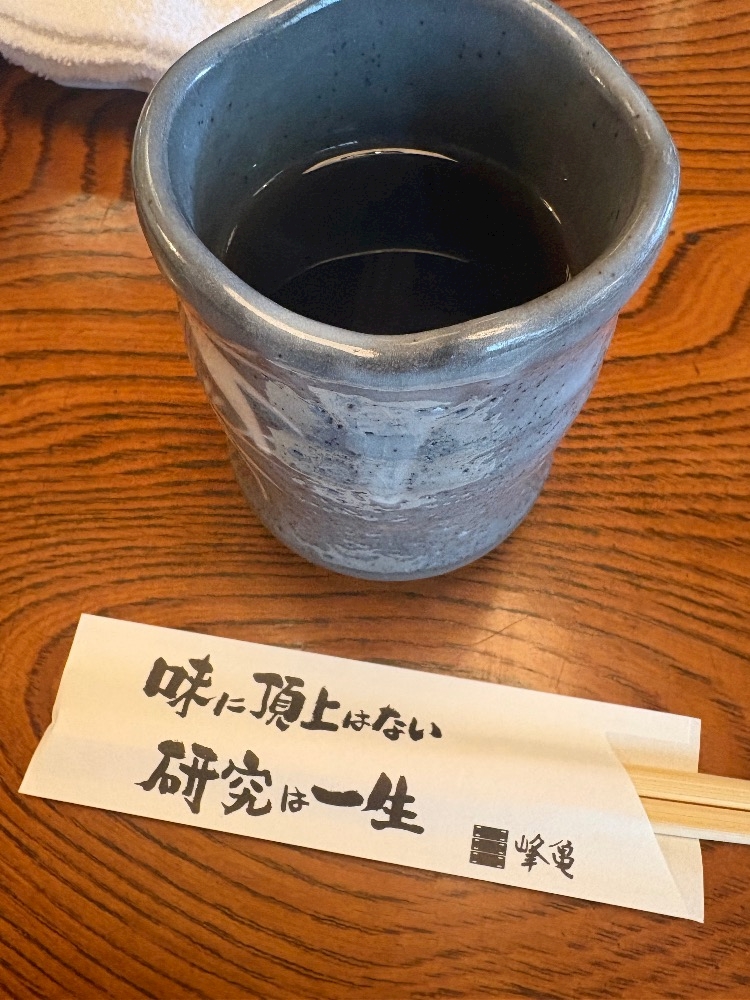 味に頂上はない
研究は一生
峰亀